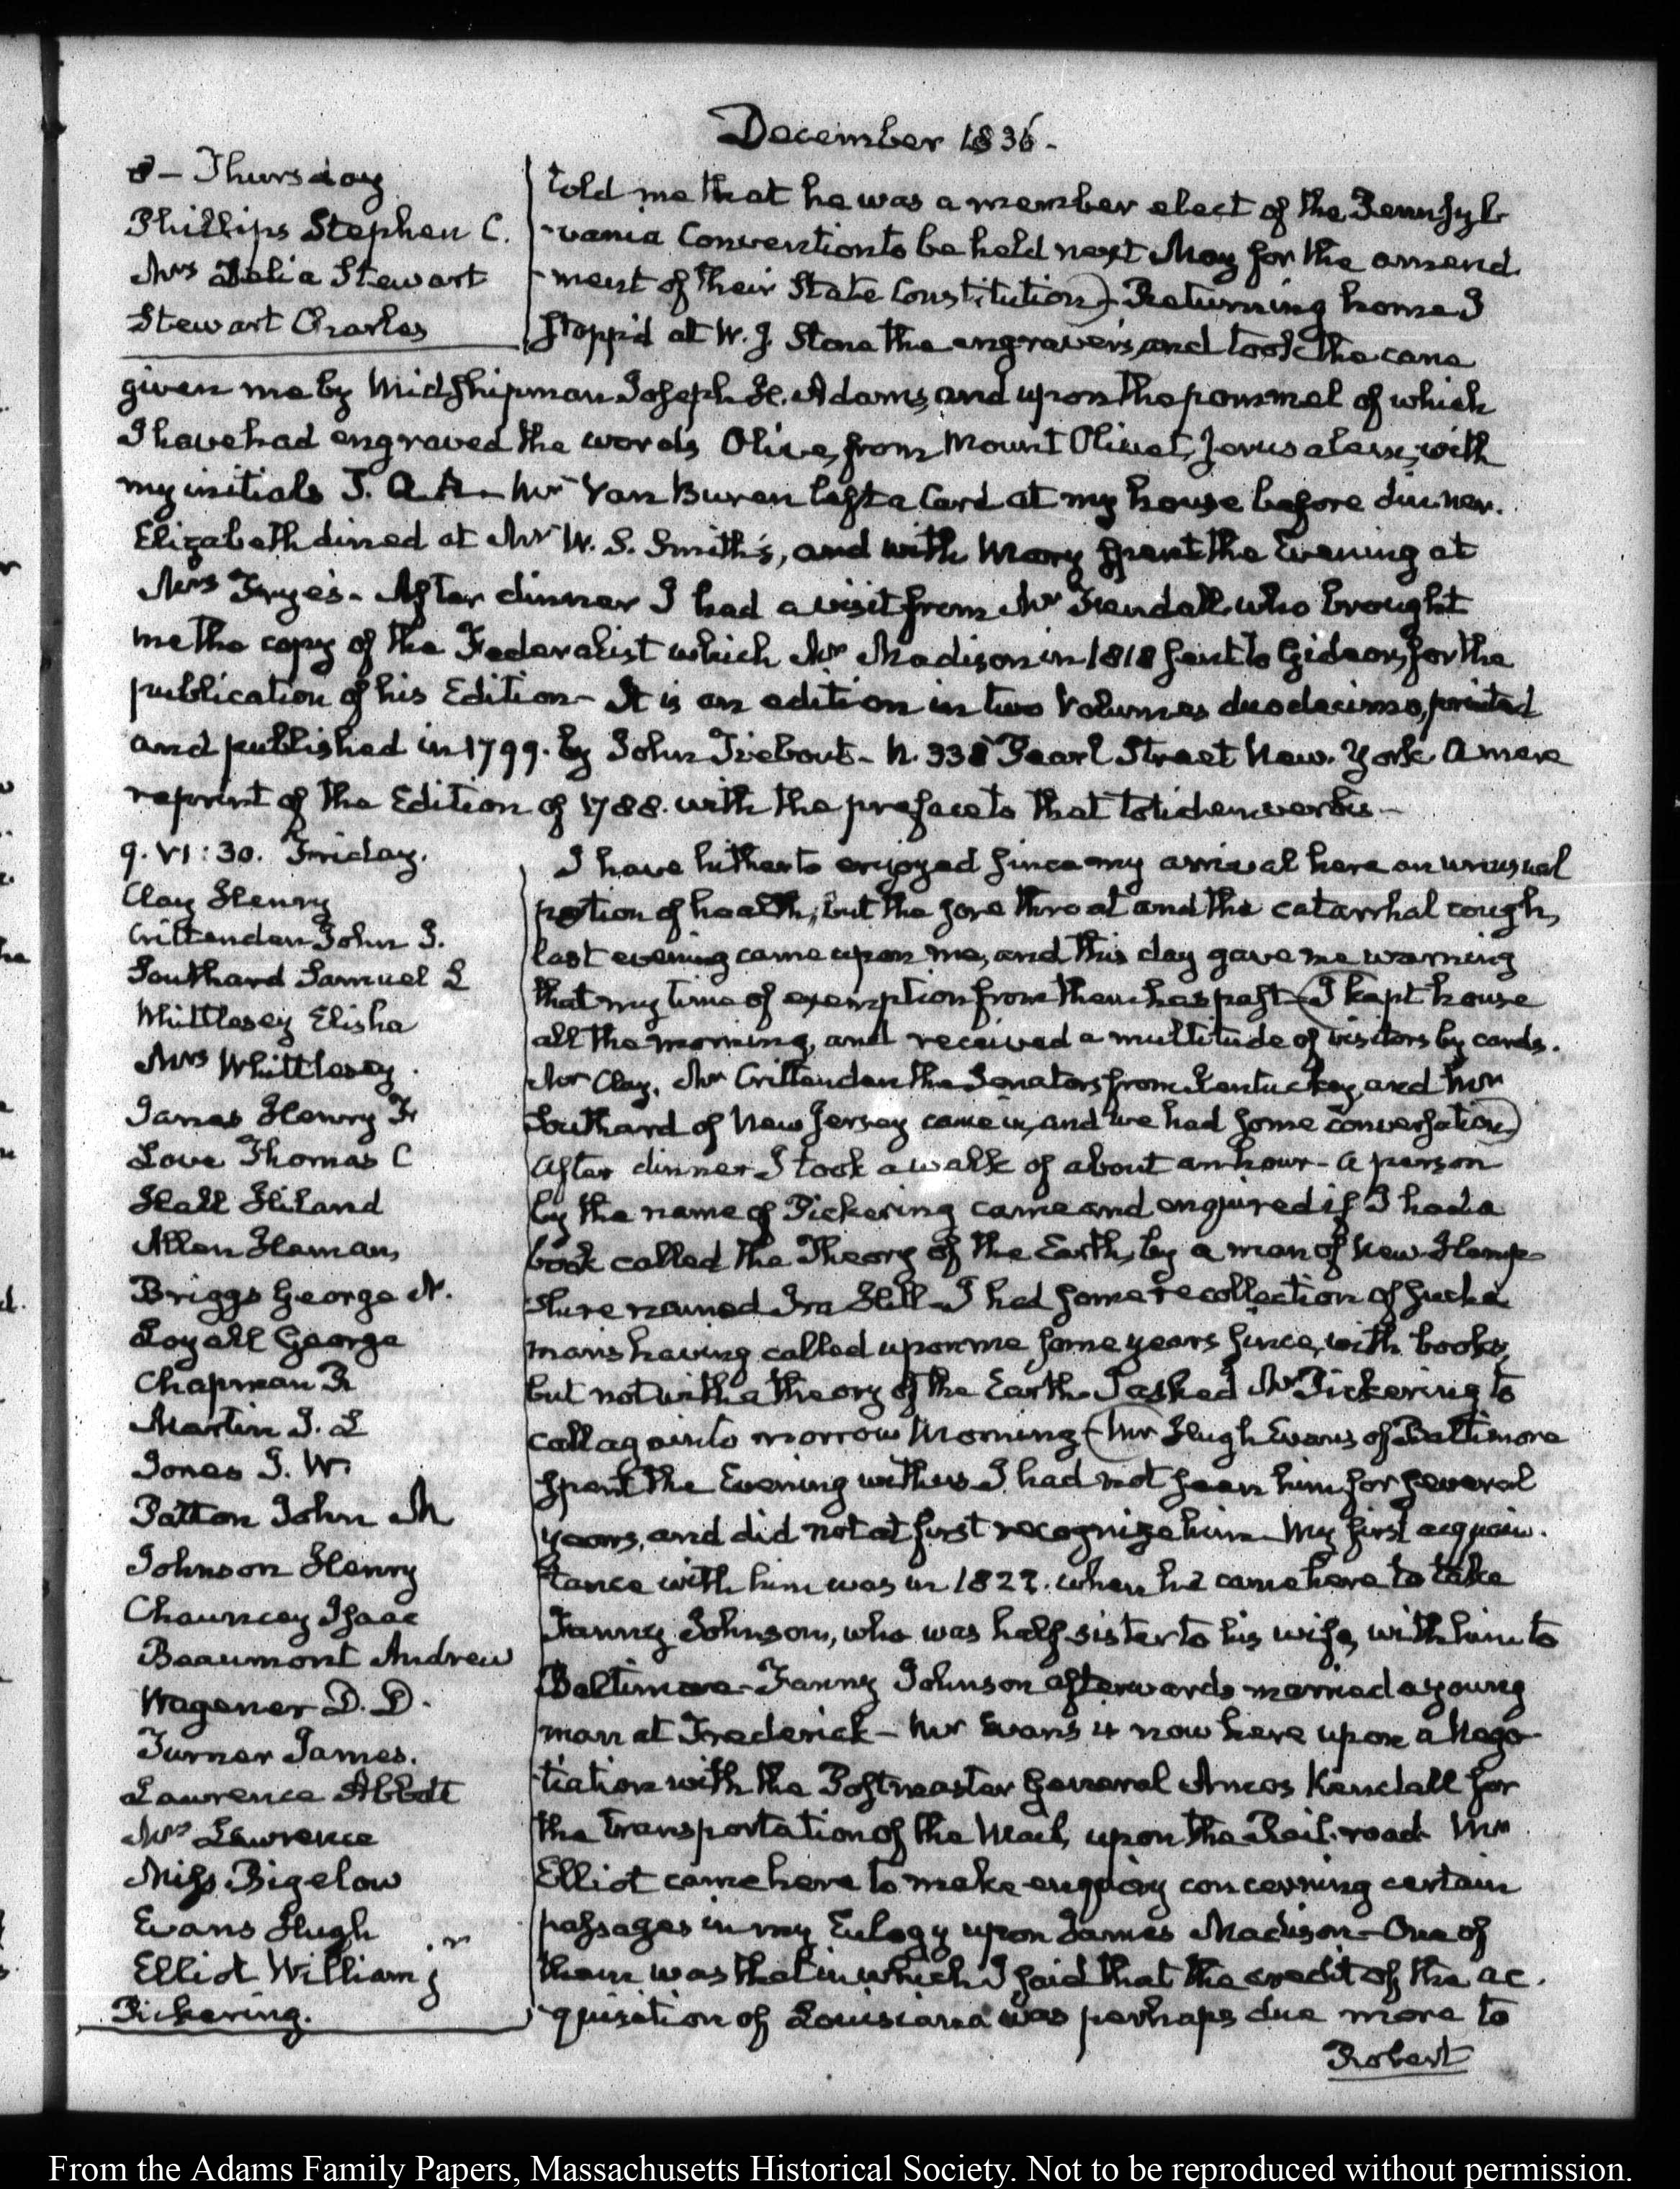 December 1836.
8 - Thursday
Phillips Stephen C.
Mrs Delia Stewart
Stewart Charles
told me that he was a member elect of the Pennsyl-
-vania Convention to be held next May for the amend-
-ment of their State Constitution) - Returning home I
stopp'd at W. J. Stone the engraver's, and took the cane
given me by Midshipman Joseph H. Adams, and upon the pommel of which
I have had engraved the words Olive, from Mount Olivet, Jerusalem, with
my initials J. Q. A. - Mr Van Buren left a Card at my house before dinner.
Elizabeth dined at Mr W. S. Smith's, and with Mary spent the Evening at
Mrs Frye's - After dinner I had a visit from Mr Trendall who brought
me the copy of the Federalist which Mr Madison in 1818 sent to Gideon, for the
publication of his Edition - It is an edition in two Volumes duodecimo, printed
and published in 1799. by John Tiebout - N. 358 Pearl Street New-York. A mere
reprint of the Edition of 1788. with the preface to that totidem verbis -
9. VI:30. Friday.
Clay Henry
Crittenden John J.
Southard Samuel L
Whittlesey Elisha
Mrs Whittlesey.
Janes Henry F.
Love Thomas C
Hall Hiland
Allen Heman
Briggs George N.
Loyall George
Chapman R
Martin J. L
Jones J. W.
Patton John M
Johnson Henry
Chauncey Isaac
Beaumont Andrew
Wagener D. D.
Turner James.
Lawrence Abbott
Mrs Lawrence
Miss Bigelow
Evans Hugh
Elliot William jr
Pickering.
I have hitherto enjoyed since my arrival here an unusual
portion of health, but the sore throat and the catarrhal cough,
last evening came upon me, and this day gave me warning
that my time of exemption from them has past - (I kept house
all the morning, and received a multitude of visitors by cards.
Mr Clay, Mr Crittenden the Senators from Kentuckey, and Mr
Southard of New Jersey came in, and we had some conversation)
After dinner I took a walk of about an hour - A person
by the name of Pickering came and enquired if I had a
book called the Theory of the Earth, by a man of New-Hamp-
shire named Ira Hill - I had some recollection of such a
man's having called upon me some years since, with books,
but not with a theory of the Earth. I asked Mr Pickering to
call again to morrow Morning - (Mr Hugh Evans of Baltimore
spent the Evening with us. I had not seen him for several
years, and did not at first recognize him. My first acquain-
tance with him was in 1822. when he came here to take
Fanny Johnson, who was half sister to his wife, with him to
Baltimore - Fanny Johnson afterwards married a young
man at Frederick - Mr Evans is now here upon a Nego-
tiation with the Postmaster General Amos Kendall for
the transportation of the Mail, upon the Rail-road. Mr
Elliot came here to make enquiry concerning certain
passages in my Eulogy upon James Madison - One of
them was that in which I said that the credit of the ac-
quisition of Louisiana was perhaps due more to
Robert
From the Adams Family Papers, Massachusetts Historical Society. Not to be reproduced without permission.